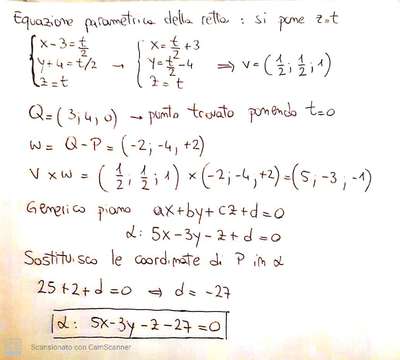 Equazione parametrica della retta: si pone z=t
{x-3=t/2 {x=t/2+3
{y+4=t/2 → {y=t/2-4 ⇒ v=(1/2; 1/2; 1)
{z=t {z=t
Q=(3; 4, 0) → punto trovato ponendo t=0
w = Q-P = (-2; -4, +2)
v×w = (1/2, 1/2; 1) × (-2; -4, +2) = (5, -3, -1)
Generico piano ax+by+cz+d=0
α: 5x-3y-z+d=0
Sostituisco le coordinate di P in α
25+2+d=0 ⇒ d=-27
α: 5x-3y-z-27=0
Scansionato con CamScanner